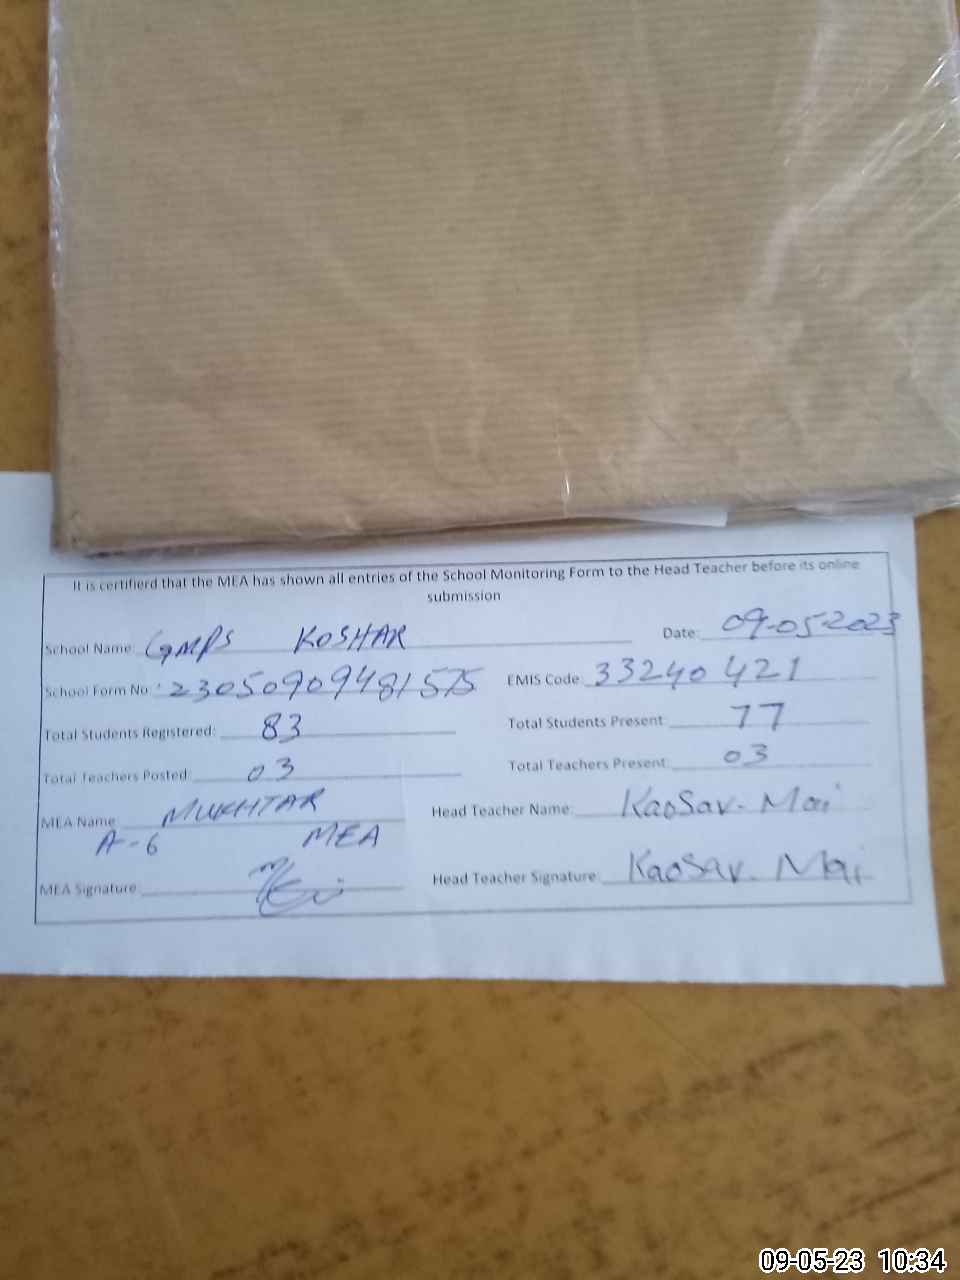 It is certifierd that the MEA has shown all entries of the School Monitoring Form to the Head Teacher before its online
submission
School Name: GMPS KOSHAR Date: 09-05-2023
School Form No: 23050909481575 EMIS Code: 33240421
Total Students Registered: 83 Total Students Present: 77
Total Teachers Posted: 03 Total Teachers Present: 03
MEA Name MUKHTAR Head Teacher Name: KaoSar. Mai
A-6 MEA
MEA Signature: Head Teacher Signature: KaoSar. Mai
09-05-23 10:34